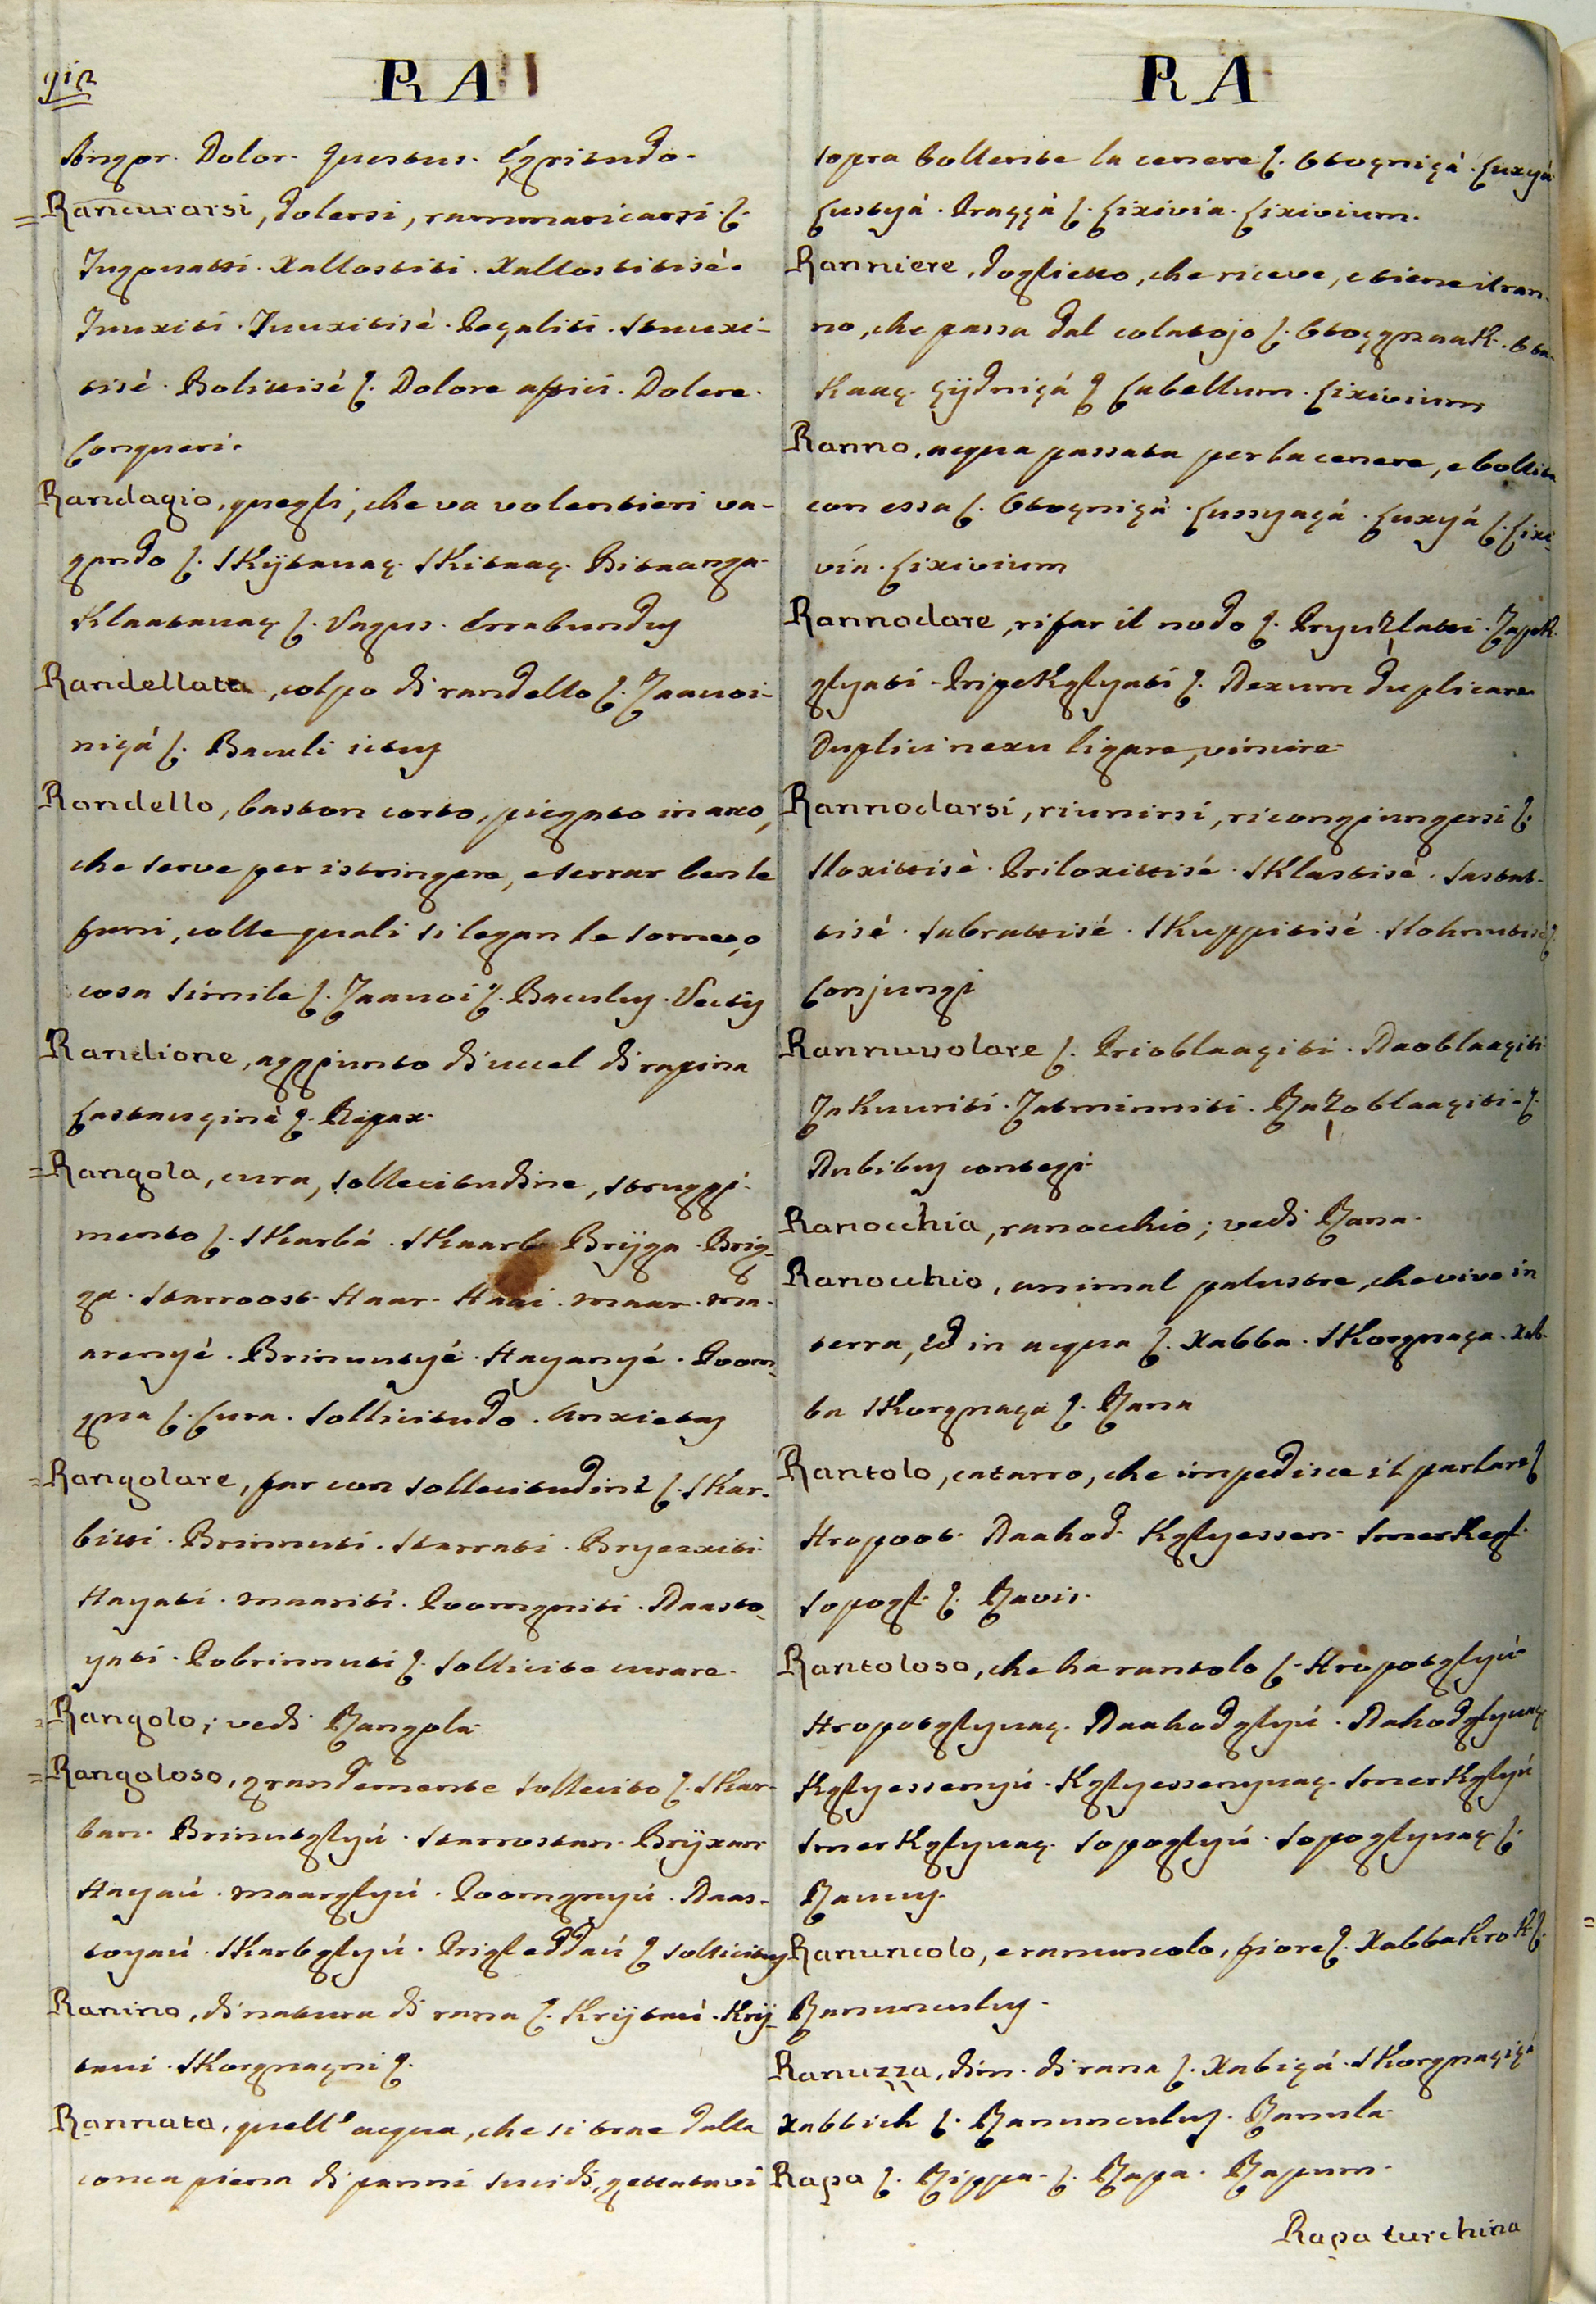 RA
Angor. Dolor. Questus. Egritudo.
Rancurarsi, dolersi, rammaricarsi.
Tugovatti. Xallostiti. Xallostitisè.
Tuuxiti. Tuuxitisè. Peçaliti. Stuuxi-
tisè. Bolittisè. Dolore affici. Dolere.
Conqueri.
Randagio, quegli, che va volentieri va-
gando. Skÿtauaç. Skitaaç. Bitaanga.
Klaatauaç. Vagus. Errabundus
Randellata, colpo di randello. Zaauoi-
niçá. Baculi ictus
Randello, baston corto, piegato in arco,
che serve per istringere, e serrar ben le
funi, colle quali si legan le some, o
cosa simile. Zaauoi. Baculus. Vectis
Randione, aggiunto di uccel di rapina
Lastauçinà. Rapax.
Rangola, cura, sollecitudine, struggi-
mento. Skarbá. Skaarb. Brÿga. Brig-
ga. Starroost. Haar. Haai. maar. ma-
arenyé. Brinutyé. Hayanyé. Poom-
gna. Cura. Sollicitudo. Anxietas
Rangolare, far con sollecitudine. Skar-
bitti. Brinnuti. Starrati. Bryexxiti.
Hayati. maariti. Poomgniti. Naasto-
yati. Pobrinnuti. Sollicite curare.
Rangolo; vedi Rangola
Rangoloso, grandemente sollecito. Skar-
ban. Brinutglyú. Starrostan. Brÿxan
Hayaú. maarglyú. Poomgnyú. Naas-
toyaú. Skarbglyú. Prigleddaú. Sollicitus
Ranino, di natura di rana. Krÿtaú. Krÿ-
taui. Skorgnaçni.
Rannata, quell' acqua, che si trae dalla
conca piena di panni sucidi, gettatavi
RA
sopra bollente la cenere. Otoçniçà. Luxyá
Lustyá. Praççá. Lixivia. Lixivium.
Ranniere, doglietto, che riceve, e tiene il ran-
no, che passa dal colatojo.
Labellum. Lixivium
Ranno, acqua passata per la cenere, e bollita
con essa. Otoçniçà. Lussyaçá. Luxyá. Lixi-
via. Lixivium
Rannodare, rifar il nodo. Pryuzlatti. Zapek-
glyati. Pripekglyati. Nexum duplicare
Duplici nexu ligare, vincire
Rannodarsi, riunirsi, ricongiungersi.
Sloxittisè. Priloxittisé. Sklastisè. Sastat-
tisé. Sabrattisé. Skuppitisé. Slohnutisé.
Conjungi
Rannuvolare. Prioblaaçiti. Naoblaaçiti
Zakuuriti. Zatminniti. Razoblaaçiti.
Nubibus contegi
Ranocchia, ranocchio; vedi Rana.
Ranocchio, animal palustre, che vive in
terra, ed in acqua. Xabba. Skorgnaça. Xab-
ba Skorgnaça. Rana
Rantolo, catarro, che impedisce il parlare.
Hropoot. Naahod. Kglyessen. Smerkegl.
Sopogl. Ravis.
Rantoloso, che ha rantolo. Hropotglyú
Hropotglyuaç. Naahodglyú. Nahodglyuaç
Kglyessenyú. Kglyessenyuaç. Smerkglyú
Smerkglyuaç. Sopoglyú. Sopoglyuaç.
Raucus.
Ranuncolo, e ramuncolo, fiore. Xabbakrok.
Ranunculus.
Ranuzza, dim. di rana. Xabiçá. Skorgnaçiçá
Xabbich. Ranunculus. Ranula.
Rapa. Rippa. Rapa. Rapum.
Rapa turchina